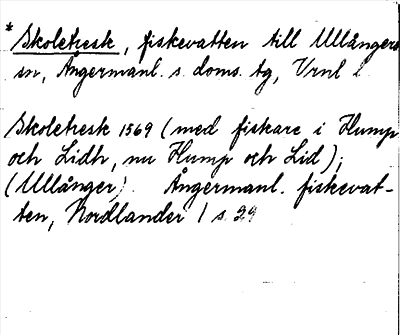 * Skoletresk, fiskevatten till Ullångers
sn, Ångermanl. s. doms. tg, Vrnl l.
Skoletresk 1569 (med fiskare i Hump
och Lidh, nu Hump och Lid);
(Ullånger). Ångermanl. fiskevat-
ten, Nordlander 1 s. 29